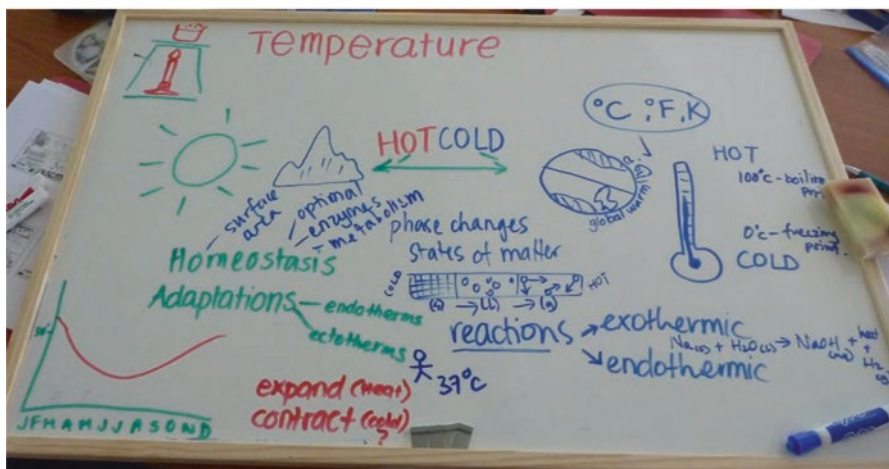 Temperature
°C, °F, K
HOT COLD
HOT
100°C - boiling
0°C - freezing
point.
COLD
global warming
surface
area
optimal
enzymes
metabolism
Homeostasis
Adaptations
endotherms
ectotherms
phase changes
states of matter
COLD
HOT
(s) → (l) → (g)
reactions
exothermic
Na(s) + H2O(l) → NaOH(aq) + heat + H2(g)
endothermic
37°C
expand (Heat)
contract (cold)
?
J F M A M J J A S O N D